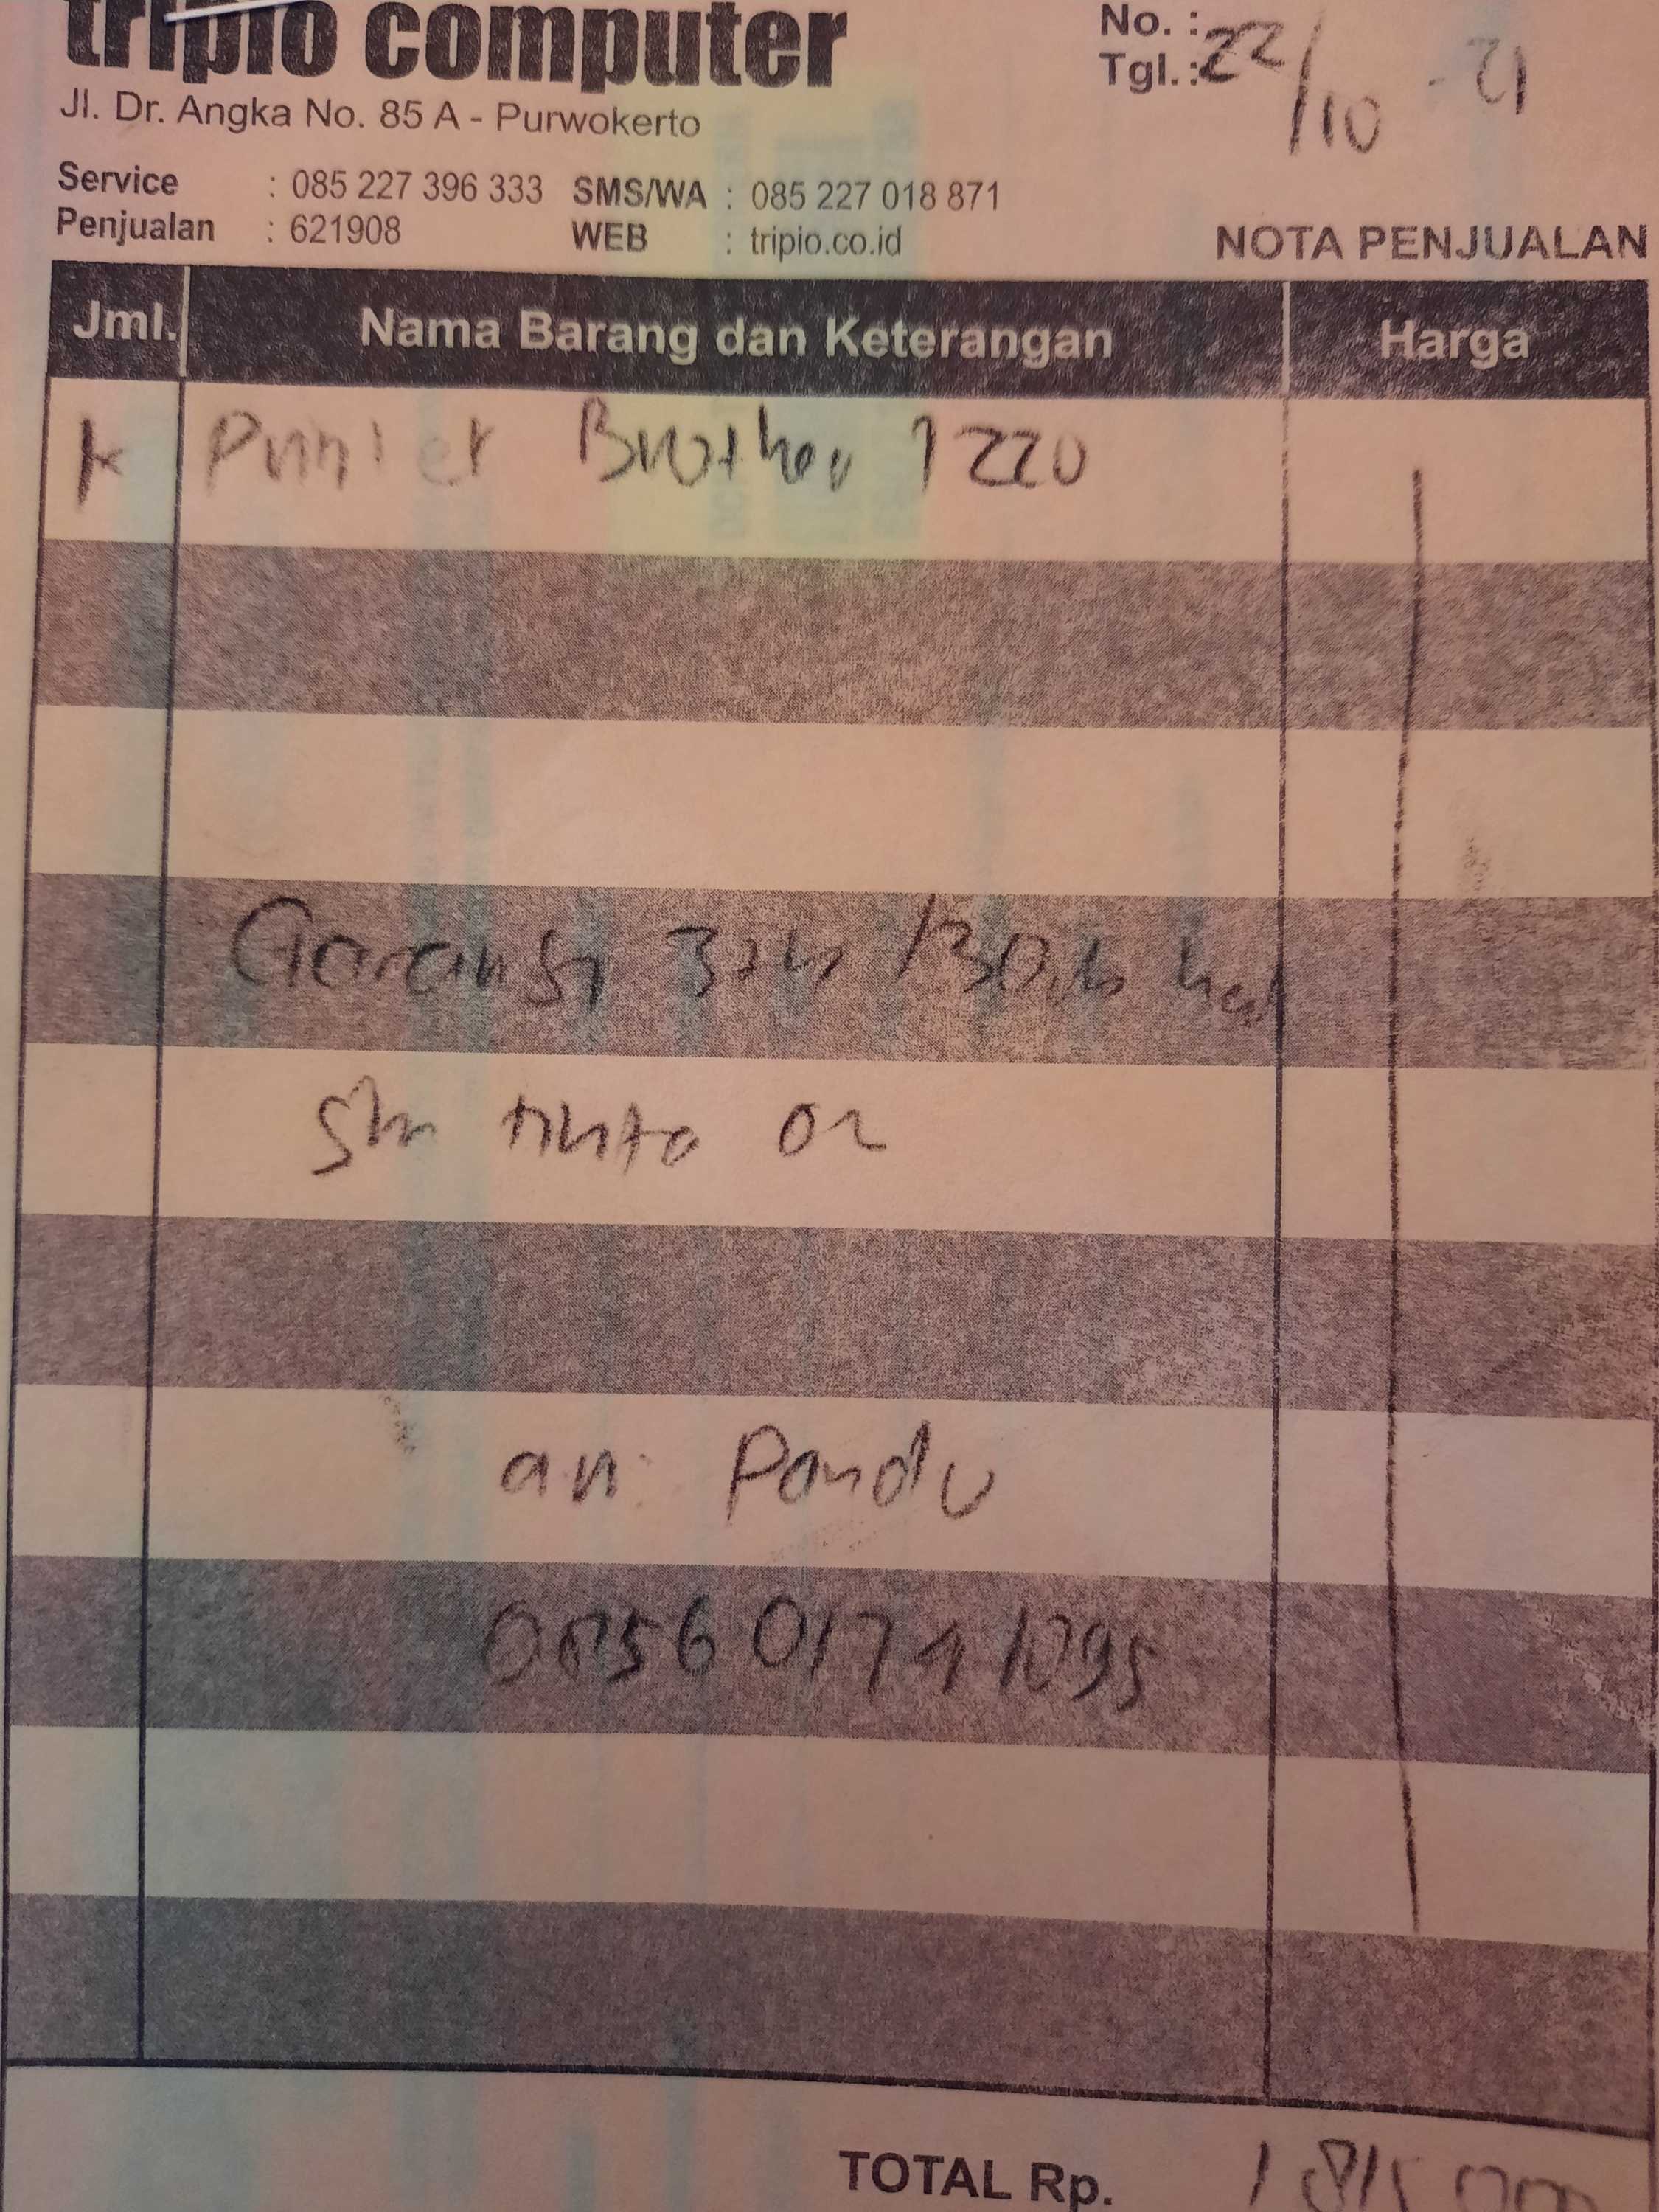 tripio computer
No. :
Tgl. : 22/10 - 21
Jl. Dr. Angka No. 85 A - Purwokerto
Service : 085 227 396 333 SMS/WA : 085 227 018 871
Penjualan : 621908 WEB : tripio.co.id
NOTA PENJUALAN
Jml. Nama Barang dan Keterangan Harga
Printer Brother 1220
Garansi
tinta
an: Pandu
TOTAL Rp.